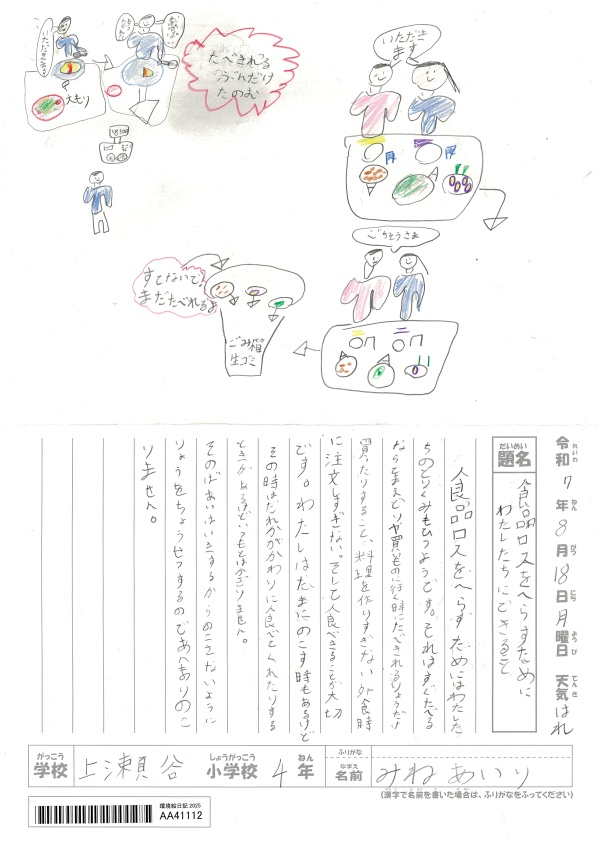 たべきれる
ぶんだけ
たのむ
いただき
ます
大もり
ごちそうさま
すてないで!
まだたべれるよ
ごみ箱
生ゴミ
令和 7年 8月 18日 月曜日 天気 はれ
れいわ ねん がつ にち ようび てんき
だいめい
題名
食品ロスをへらすために
わたしたちにできること
食品ロスをへらすためにはわたした
ちのとりくみもひつようです。それはすぐたべる
ならてまえどりや買いものに行く時にたべきれるりょうだけ
買ったりすること、料理を作りすぎない 外食時
に注文しすぎない。そして人食べきることが大切
です。わたしはたまにのこす時もあるけど
その時はだれかがかわりに食べてくれたりする
ときがあるけどいつもとは
りません。
そのばあいは
するからのこさないように
りょうをちょうせつするのであんまりのこ
りません。
がっこう
学校
上瀬谷
しょうがっこう
小学校
4
ねん
年
ふりがな
なまえ
名前
みねあいり
(漢字で名前を書いた場合は、ふりがなをふってください)
環境絵日記 2025
AA41112